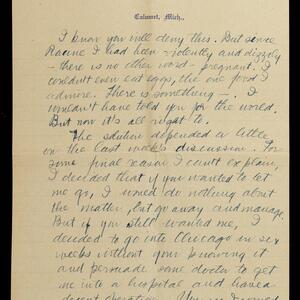 Calumet, Mich.,
I know you will deny this. But since
Racine I had been violently and dizzily
— there is no other word — pregnant. I
couldn't even eat eggs, the one food I
admire. There is something —. I
wouldn't have told you for the world.
But now it's all right to.
The solution depended a little
on the last week's discussion. For
some final reason I can't explain,
I decided that if you wanted to let
me go, I would do nothing about
the matter, but go away and manage.
But if you still wanted me, I
decided to go into Chicago in six
weeks without your knowing it
and persuade some doctor to get
me into a hospital and have a
decent operation.